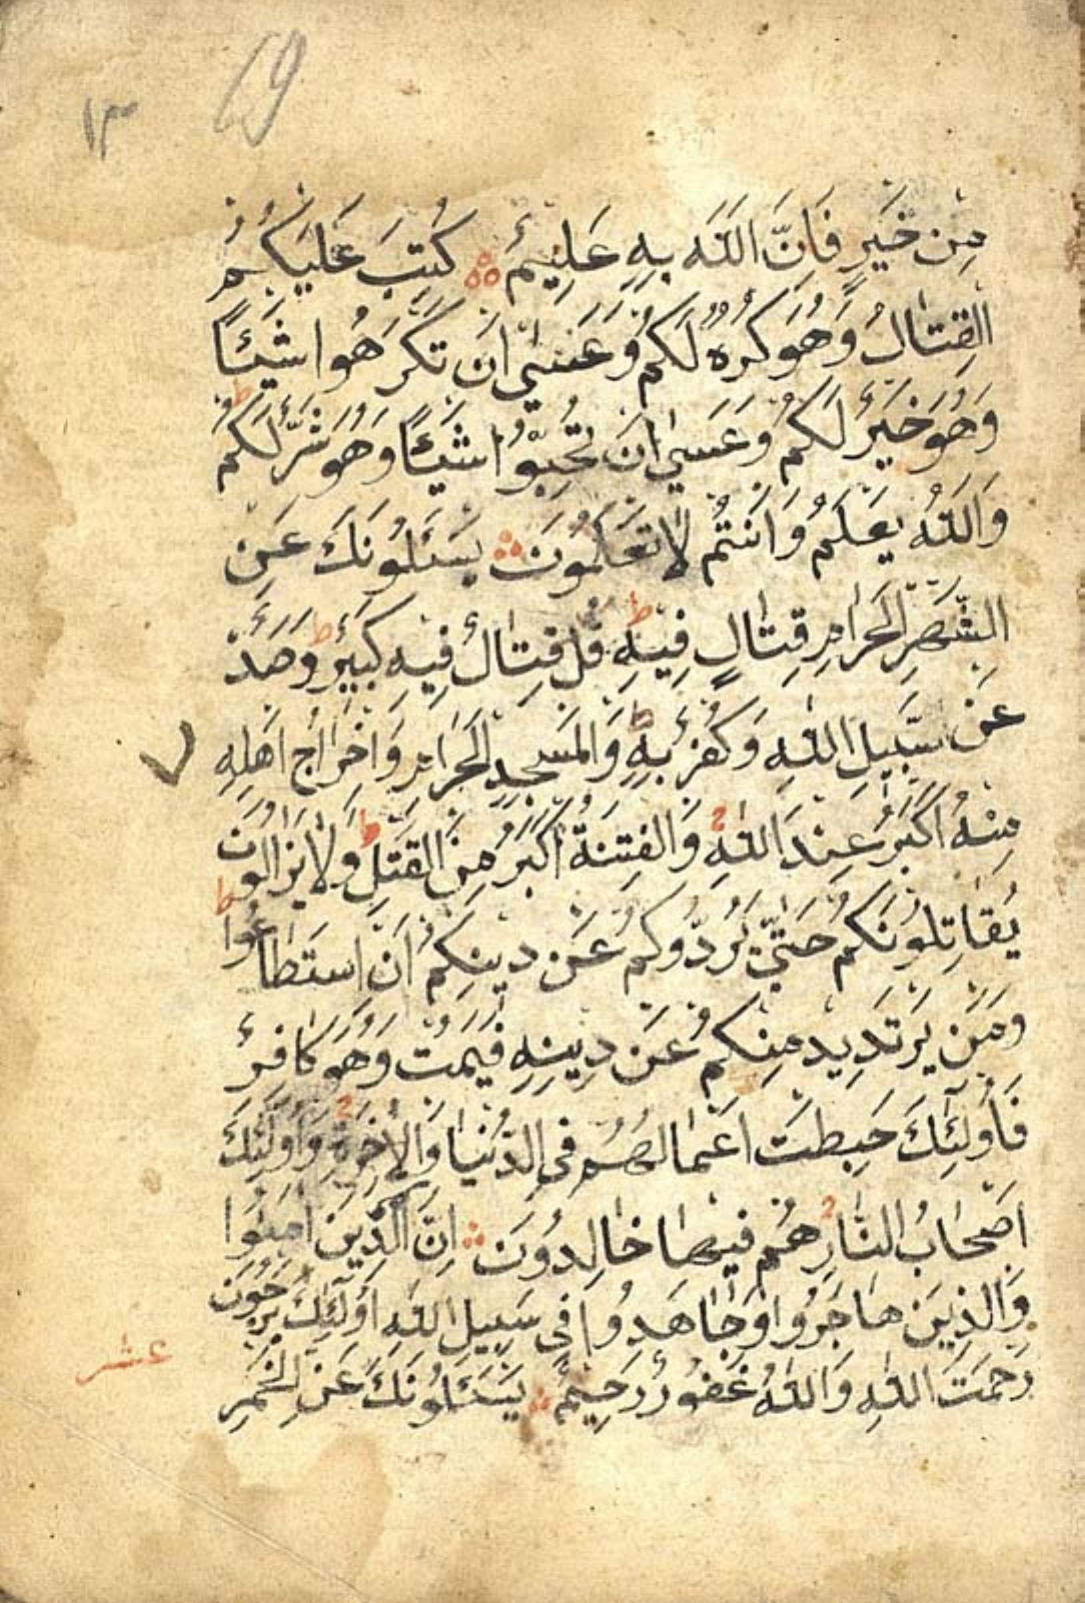 69
١٣
مِنْ خَيْرٍ فَاِنَّ اللّٰهَ بِهِ عَلِيمٌ كُتِبَ عَلَيْكُمُ
الْقِتَالُ وَهُوَ كُرْهٌ لَكُمْ وَعَسٰى اَنْ تَكْرَهُوا شَيْـًٔا
وَهُوَ خَيْرٌ لَكُمْ وَعَسٰى اَنْ تُحِبُّوا شَيْـًٔا وَهُوَ شَرٌّ لَكُمْ ط
وَاللّٰهُ يَعْلَمُ وَاَنْتُمْ لَا تَعْلَمُونَ يَسْـَٔلُونَكَ عَنِ
الشَّهْرِ الْحَرَامِ قِتَالٍ فِيهِ ط قُلْ قِتَالٌ فِيهِ كَبِيرٌ ط وَصَدٌّ
عَنْ سَبِيلِ اللّٰهِ وَكُفْرٌ بِهِ ط وَالْمَسْجِدِ الْحَرَامِ وَاِخْرَاجُ اَهْلِهِ
مِنْهُ اَكْبَرُ عِنْدَ اللّٰهِ وَالْفِتْنَةُ اَكْبَرُ مِنَ الْقَتْلِ ط وَلَا يَزَالُونَ
يُقَاتِلُونَكُمْ حَتّٰى يَرُدُّوكُمْ عَنْ دِينِكُمْ اِنِ اسْتَطَاعُوا ط
وَمَنْ يَرْتَدِدْ مِنْكُمْ عَنْ دِينِهِ فَيَمُتْ وَهُوَ كَافِرٌ
فَاُولٰٓئِكَ حَبِطَتْ اَعْمَالُهُمْ فِى الدُّنْيَا وَالْاٰخِرَةِ وَاُولٰٓئِكَ
اَصْحَابُ النَّارِ هُمْ فِيهَا خَالِدُونَ اِنَّ الَّذِينَ اٰمَنُوا
وَالَّذِينَ هَاجَرُوا وَجَاهَدُوا فِى سَبِيلِ اللّٰهِ اُولٰٓئِكَ يَرْجُونَ
رَحْمَتَ اللّٰهِ وَاللّٰهُ غَفُورٌ رَحِيمٌ يَسْـَٔلُونَكَ عَنِ الْخَمْرِ
عشر